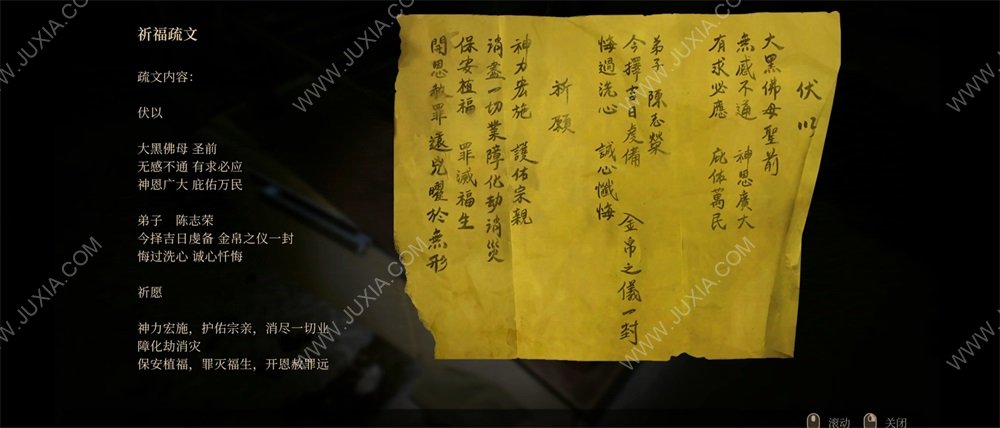 祈福疏文
疏文内容：
伏以
大黑佛母 圣前
无感不通 有求必应
神恩广大 庇佑万民
弟子 陈志荣
今择吉日虔备 金帛之仪一封
悔过洗心 诚心忏悔
祈愿
神力宏施，护佑宗亲，消尽一切业
障化劫消灾
保安植福，罪灭福生，开恩赦罪远
伏以
大黑佛母聖前
無感不通 神恩廣大
有求必應 庇佑萬民
弟子 陳志榮
今擇吉日虔備 金帛之儀一封
悔過洗心 誠心懺悔
祈願
神力宏施 護佑宗親
消盡一切業障化劫消災
保安植福 罪滅福生
開恩赦罪遠兇曜於無形
滚动
关闭
WWW.JUXIA.COM